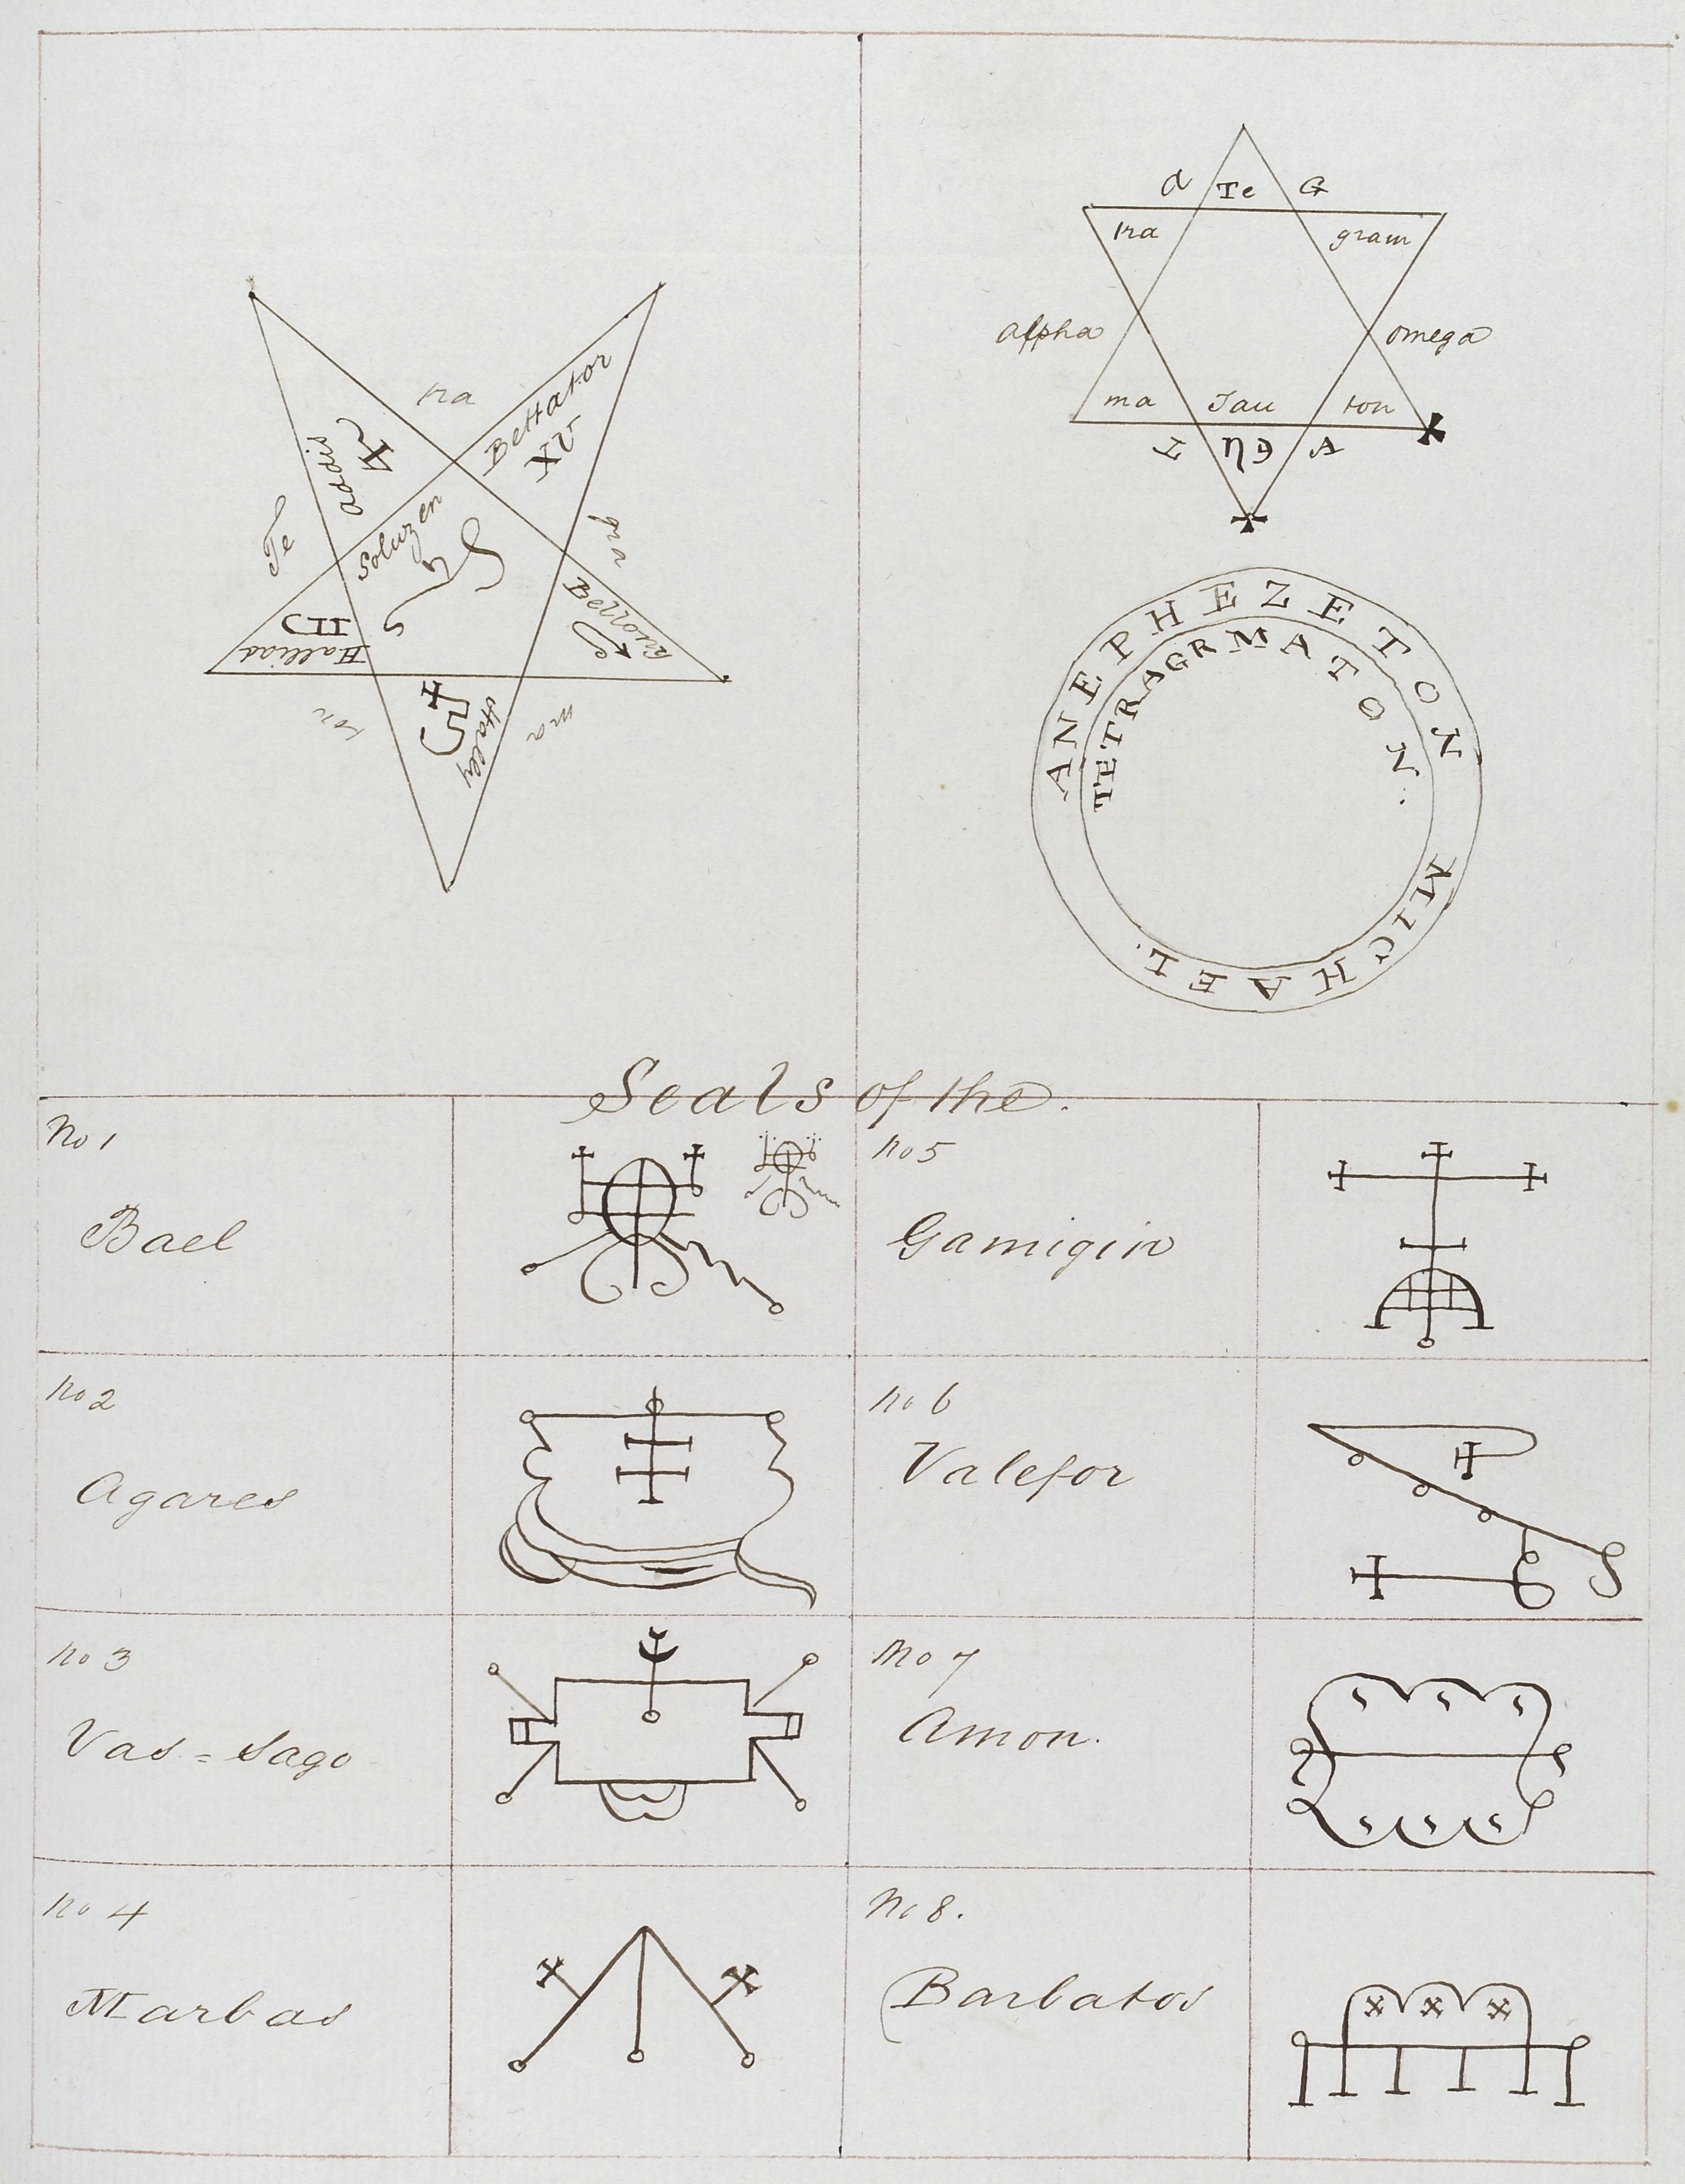 ra
Bellator
XV
Addis
Te
Soluzen
gra
Bellony
Halliad
Hally
ton
ma
α Te G
tra gram
alpha omega
ma Tau ton
A
ANEPHEZETON
TETRAGRMATON.
MICHAEL.
Seals of the.
No 1
Bael
no 5
Gamigin
no 2
Agares
no 6
Valefor
no 3
Vas = Sago
No 7
Amon.
no 4
Marbas
No 8.
Barbatos